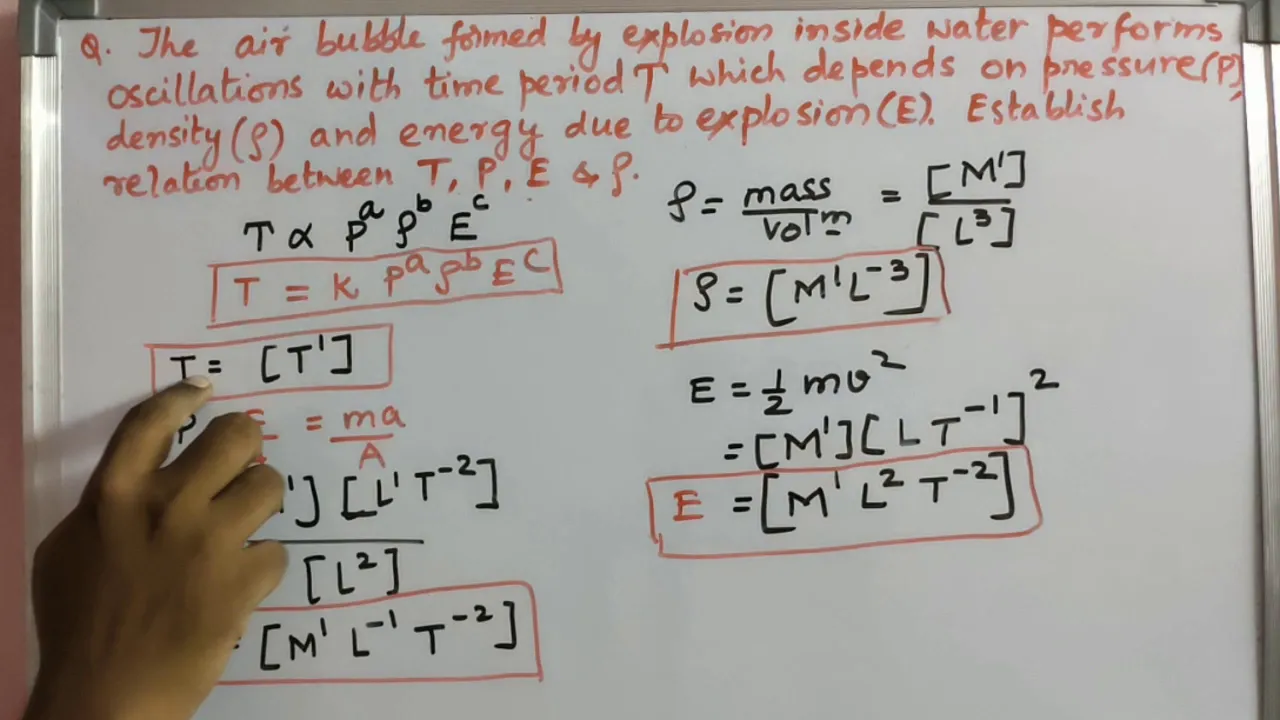 Q. The air bubble formed by explosion inside water performs
oscillations with time period T which depends on pressure(P),
density(ρ) and energy due to explosion(E). Establish
relation between T, P, E & ρ.
T ∝ P^a ρ^b E^c
T = K P^a ρ^b E^c
T = [T^1]
P
= ma/A
] [L^1 T^-2]
[L^2]
= [M^1 L^-1 T^-2]
ρ = mass/Vol^m = [M^1]/[L^3]
ρ = [M^1 L^-3]
E = 1/2 mv^2
= [M^1] [L T^-1]^2
E = [M^1 L^2 T^-2]